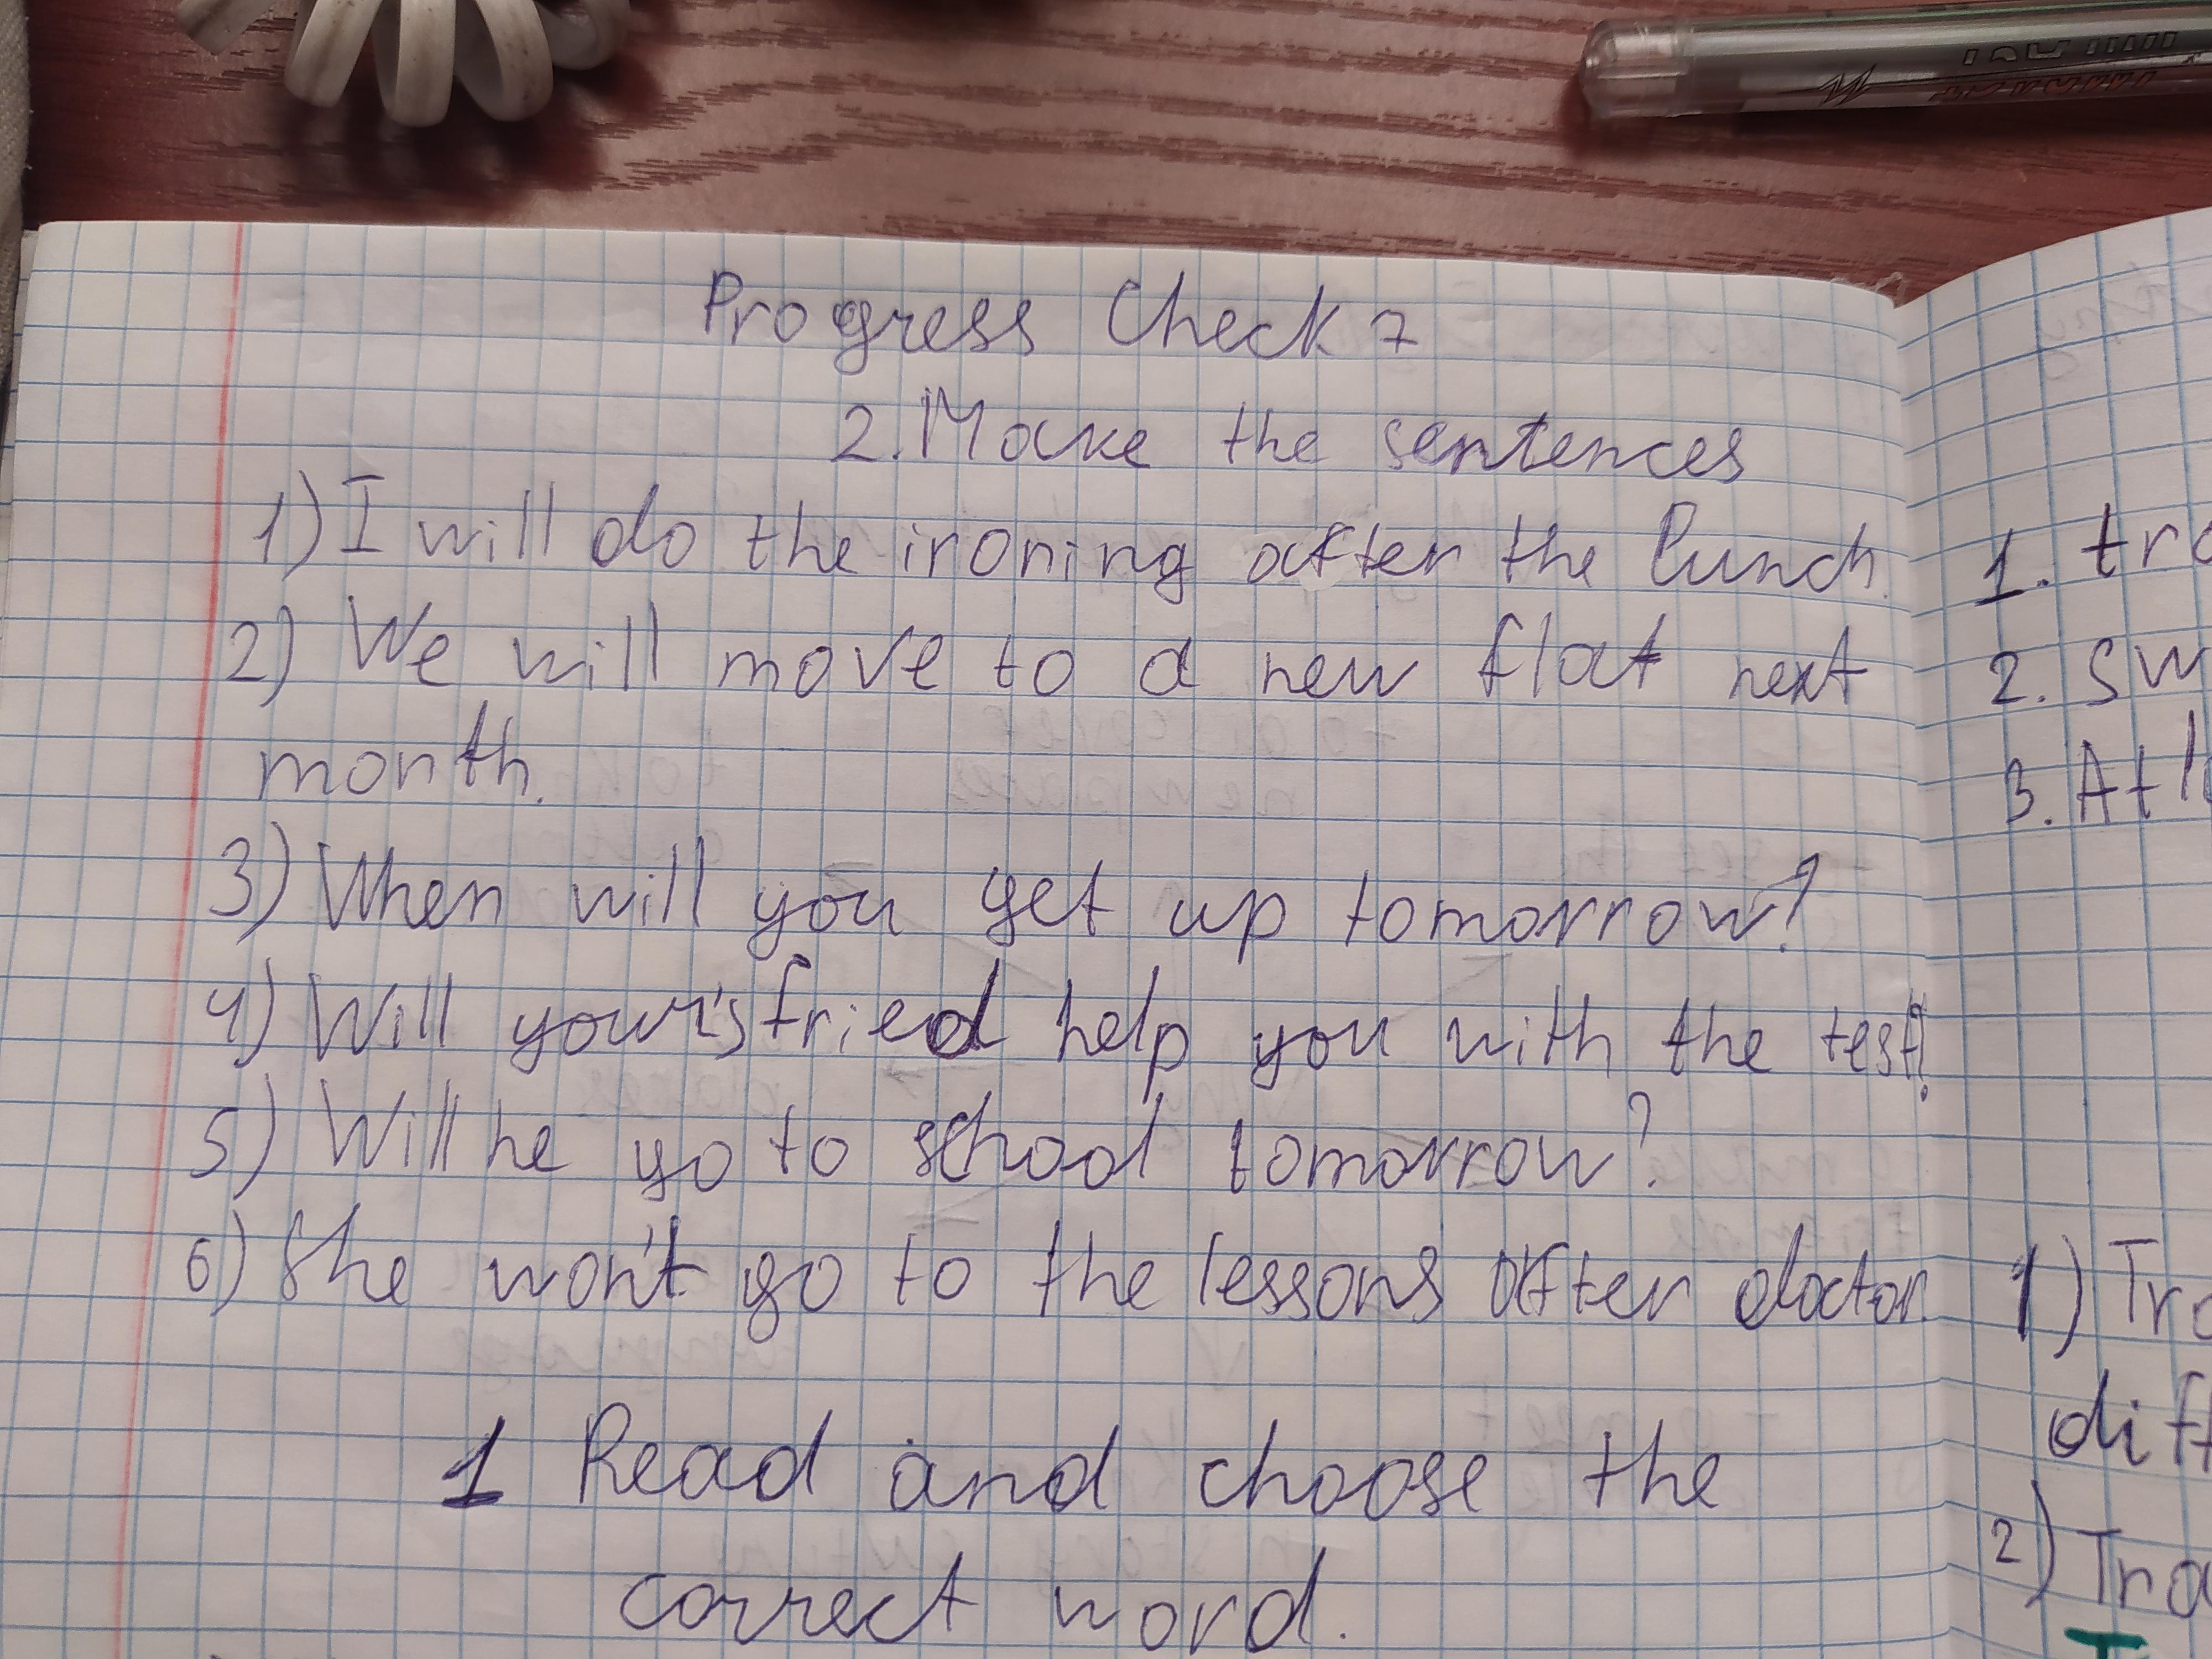 Progress Check 7
2. Make the sentences
1) I will do the ironing after the lunch.
2) We will move to a new flat next
month.
3) When will you get up tomorrow?
4) Will your's fried help you with the test?
5) Will he go to school tomorrow?
6) She won't go to the lessons after doctor.
1 Read and choose the
correct word.
1. tra
2. sw
3. Atl
1) Tra
diff
2) Tra